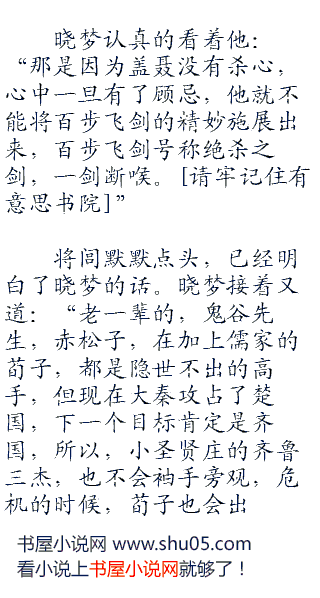 晓梦认真的看着他：
“那是因为盖聂没有杀心，
心中一旦有了顾忌，他就不
能将百步飞剑的精妙施展出
来，百步飞剑号称绝杀之
剑，一剑断喉。[请牢记住有
意思书院]”
将闾默默点头，已经明
白了晓梦的话。晓梦接着又
道：“老一辈的，鬼谷先
生，赤松子，在加上儒家的
荀子，都是隐世不出的高
手，但现在大秦攻占了楚
国，下一个目标肯定是齐
国，所以，小圣贤庄的齐鲁
三杰，也不会袖手旁观，危
机的时候，荀子也会出
书屋小说网 www.shu05.com
看小说上书屋小说网就够了！